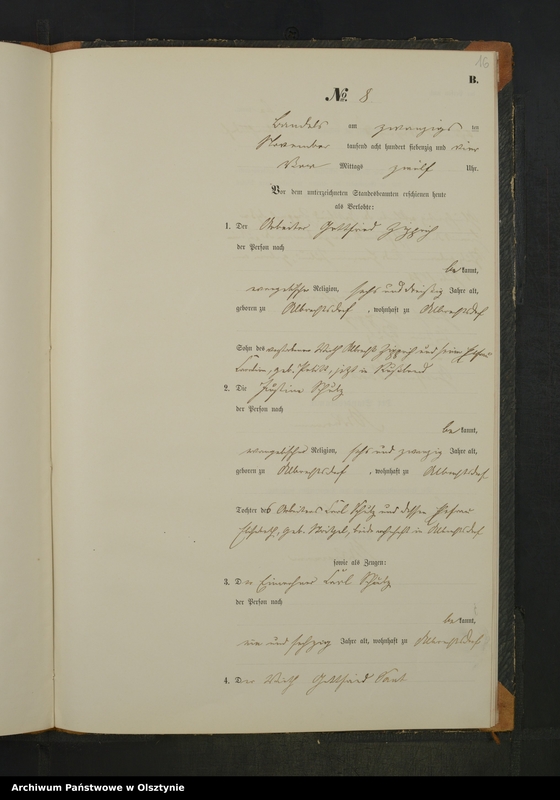 16
B.
№ 8
Bandels am zwanzigs ten
November tausend acht hundert siebenzig und vier
Vor Mittags zwölf Uhr.
Vor dem unterzeichneten Standesbeamten erschienen heute
als Verlobte:
1. Der Arbeiter Gottfried
der Person nach
be kannt,
evangelischer Religion, sechs und dreißig Jahre alt,
geboren zu Albrechtsdorf, wohnhaft zu Albrechtsdorf
Sohn des verstorbenen Wirth Albrecht und seiner Ehefrau
geb. jetzt in Rußland
2. Die Justine Schulz
der Person nach
be kannt,
evangelischer Religion, sechs und zwanzig Jahre alt,
geboren zu Albrechtsdorf, wohnhaft zu Albrechtsdorf
Tochter des Arbeiters Carl Schulz und dessen Ehefrau
Elisabeth, geb. beide wohnhaft in Albrechtsdorf
sowie als Zeugen:
3. Der Einwohner Carl Schulz
der Person nach
be kannt,
und sechzig Jahre alt, wohnhaft zu Albrechtsdorf
4. Der Wirth Gottfried
Archiwum Państwowe w Olsztynie